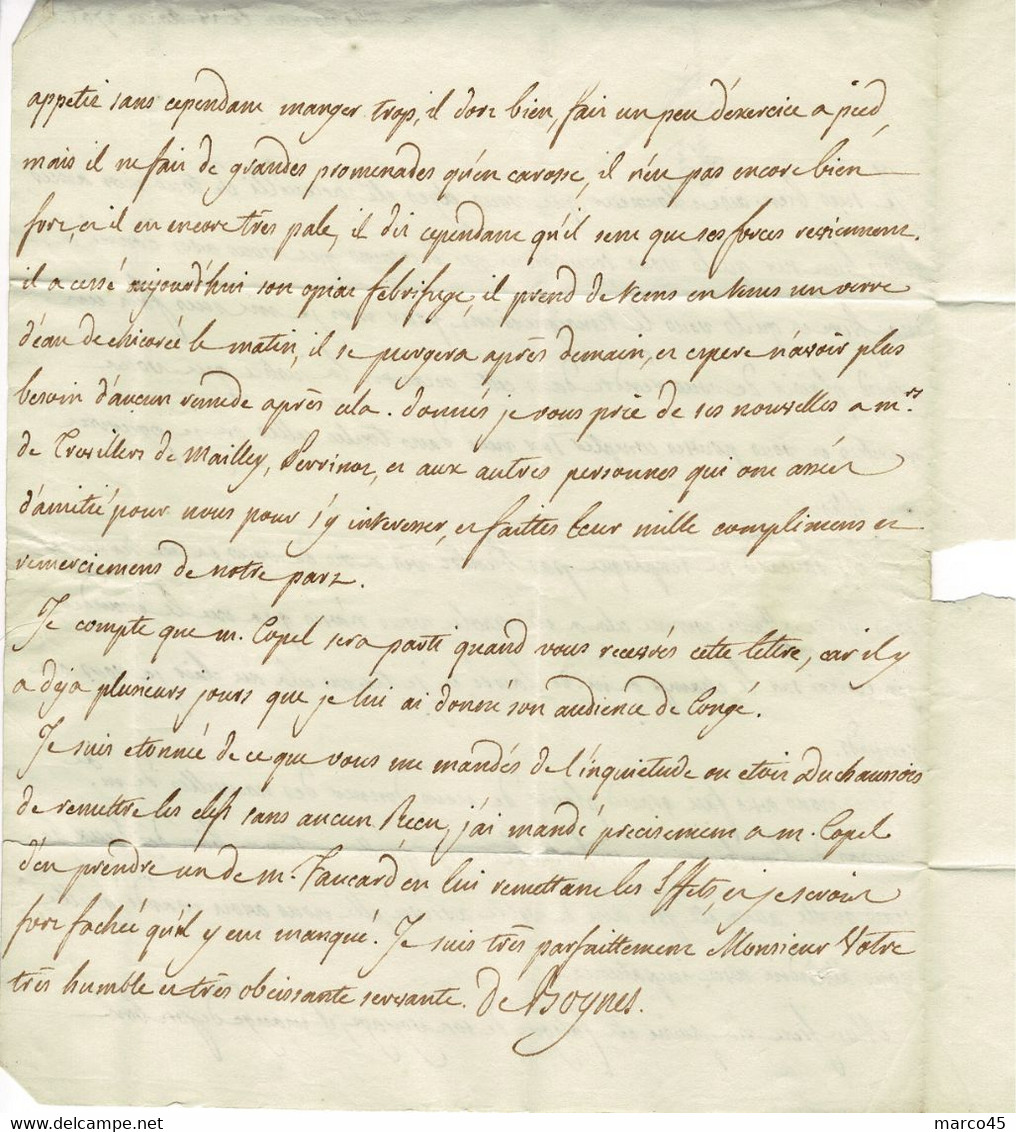 appetit sans cependant manger trop, il dort bien, fait un peu d'exercice a pied,
mais il ne fait de grandes promenades qu'en carosse, il n'est pas encore bien
fort, et il est encore très pale, il dit cependant qu'il sent que ses forces reviennent.
il a cessé aujourd'hui son opiat febrifuge, il prend de tems en tems un verre
d'eau de chicorée le matin, il se purgera après demain, et espere n'avoir plus
besoin d'aucun remede après cela. donnés je vous prie de ses nouvelles a mrs
de Trevillers de Mailley, Perrinot, et aux autres personnes qui ont assés
d'amitié pour nous pour s'y interesser, et faittes leur mille complimens et
remerciemens de notre part.
Je compte que m. Copel sera parti quand vous recevrés cette lettre, car il y
a deja plusieurs jours que je lui ai donné son audience de Congé.
Je suis etonnée de ce que vous me mandés de l'inquietude ou etoit Duchaussois
de remettre les clefs sans aucun Recu, j'ai mandé precisement a m. Copel
d'en prendre un de m. Faucard en lui remettant les Effets, et je serois
fort fachée qu'il y eut manqué. Je suis très parfaittement Monsieur Votre
très humble et très obeissante servante. de Boynes.
marco45